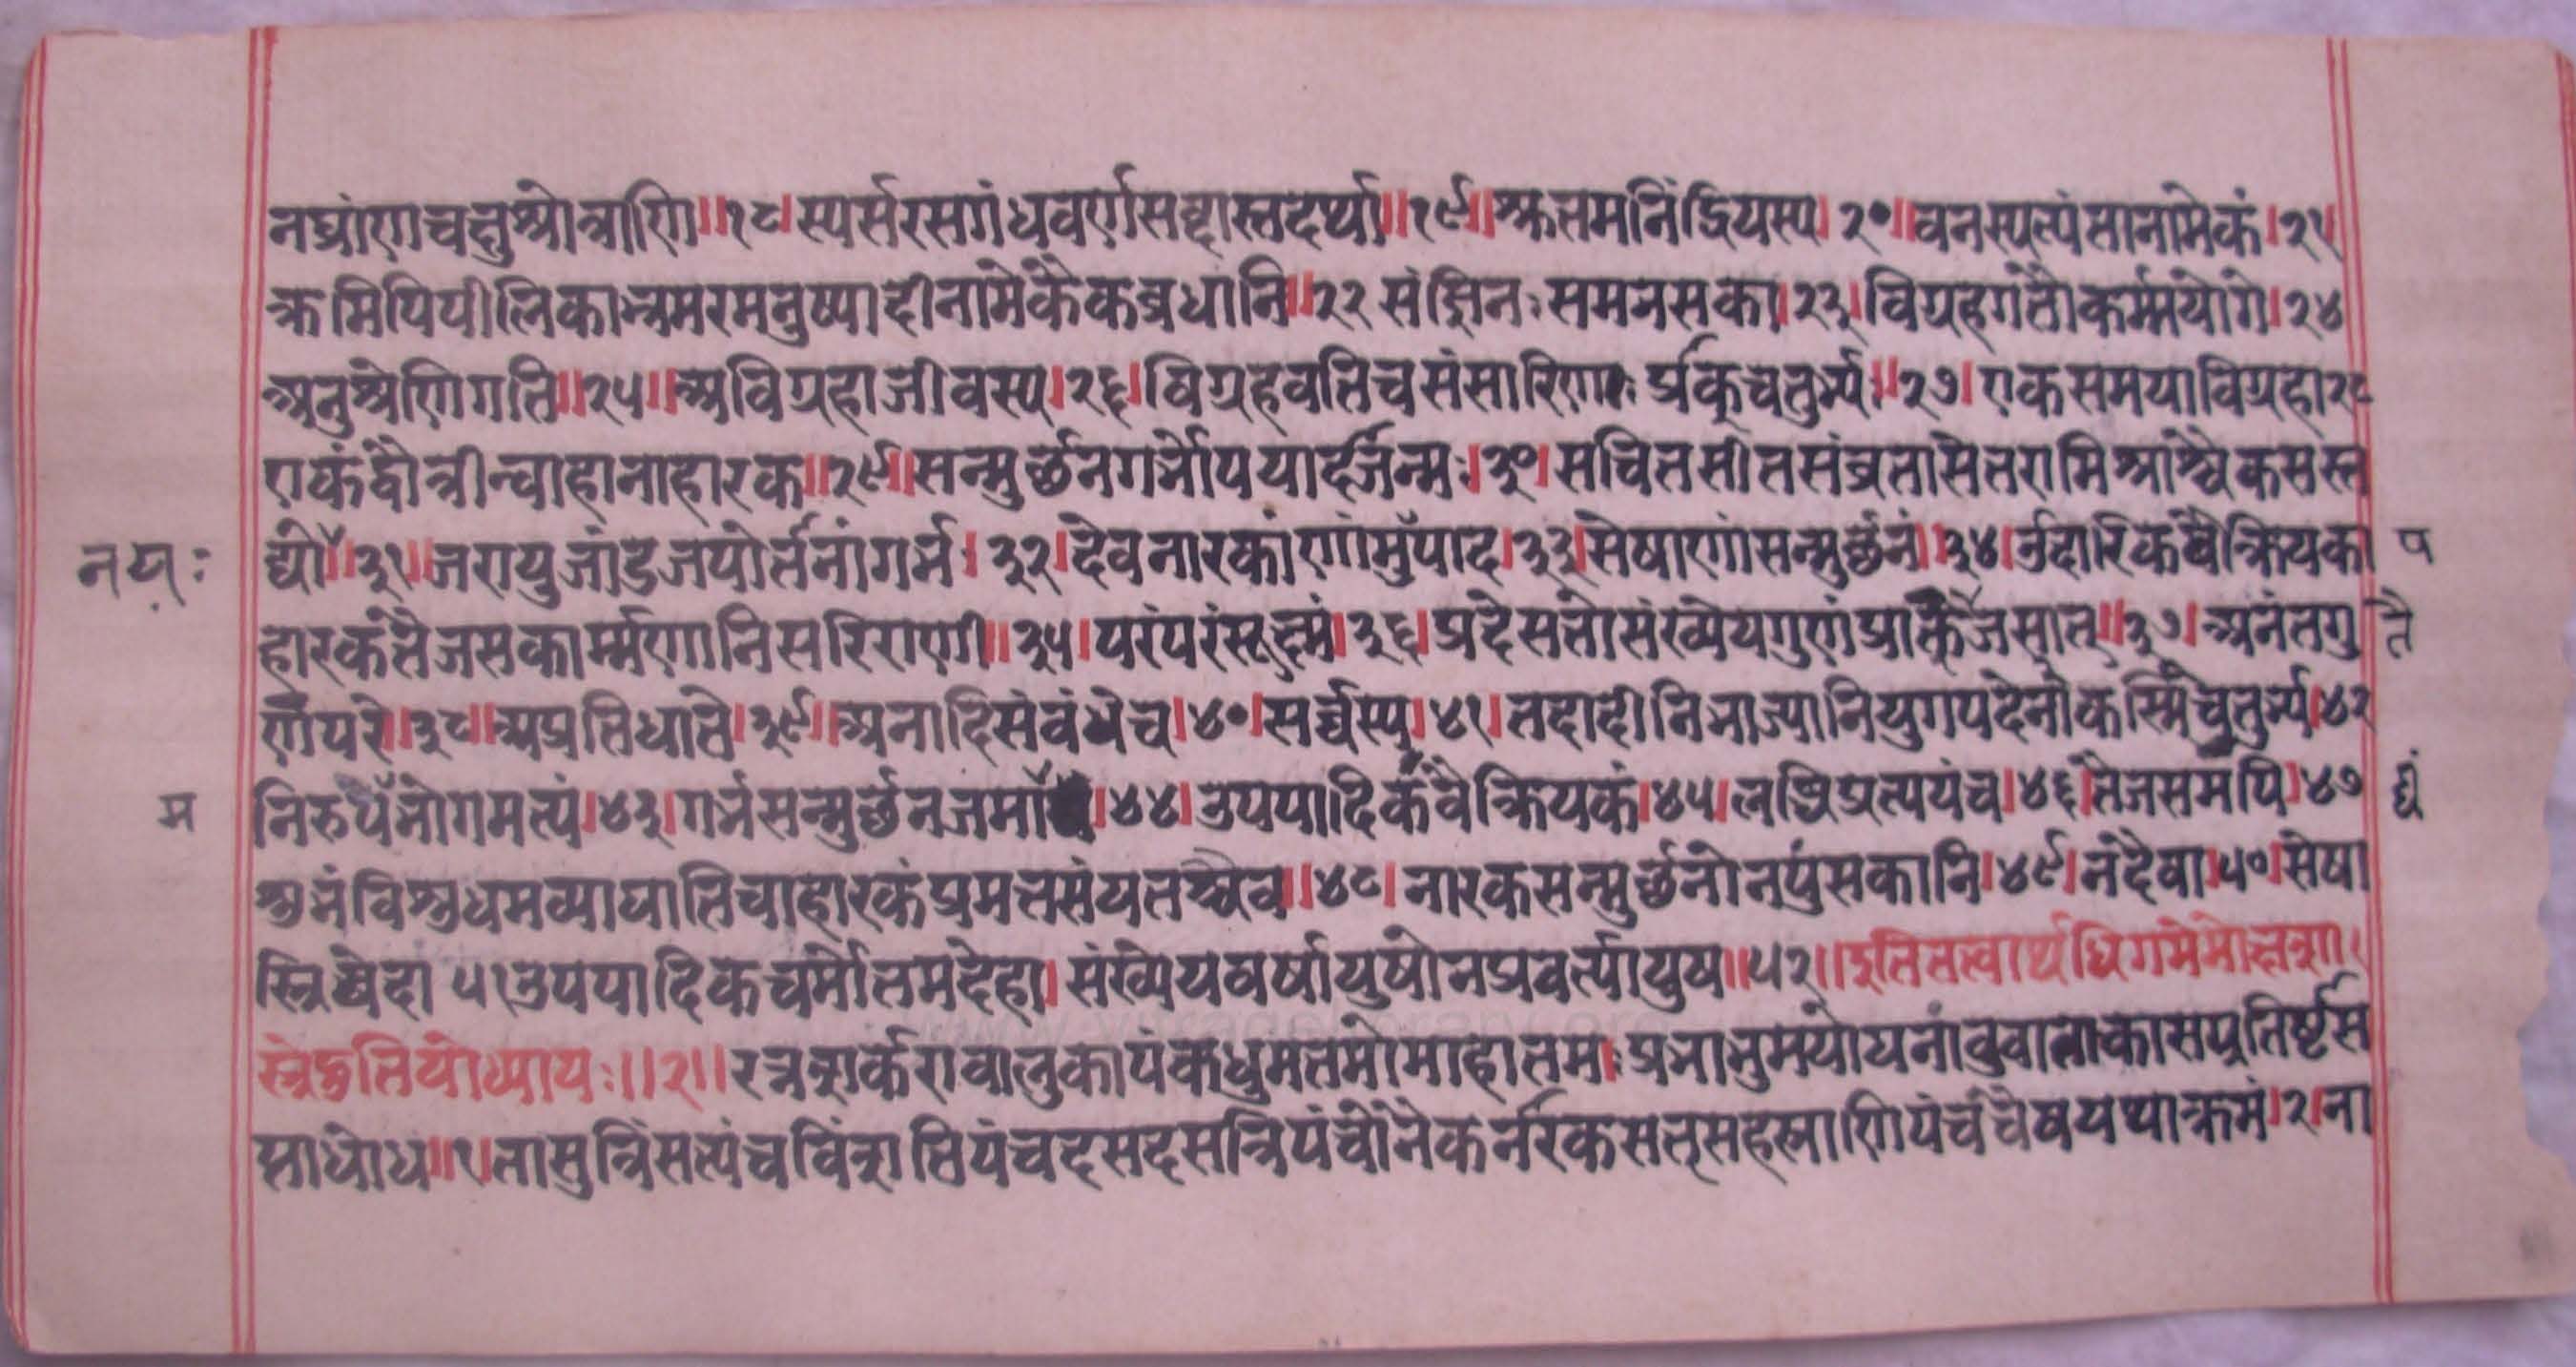 नघ्रांणचक्षुश्रोत्राणि॥१८।स्पर्सरसगंधवर्णसब्दास्तदर्था॥१९॥श्रुतमनिंद्रियस्य।२०॥वनस्पत्यंतानामेकं।२१
क्रमिपिपीलिकाभ्रमरमनुष्यादीनामेकैकव्रधानि॥२२ संज्ञिनःसमनसका।२३।विग्रहगतौकर्म्मयोगे।२४
अनुश्रेणिगति॥२५॥अविग्रहाजीवस्य।२६।विग्रहवतिचसंसारिणःर्प्राक्चतुर्भ्यः॥२७।एकसमयाविग्रहा२८
एकंद्वौत्रीन्वाहानाहारक॥२९॥सन्मुर्छनगर्भोपपार्दजन्मः।३०।सचितसीतसंव्रतासेतरामिश्राश्चैकसस्त
द्यो॥३१॥जरायुजांडजपोर्तनांगर्भः।३२।देवनारकांणांमुपाद।३३।सेषाणांसन्मुर्छनं।३४।र्उदारिकवैक्रियका प
नयः
हारकतैजसकार्म्मणानिसरिराणी॥३५।परंपरंसूक्ष्मं।३६।प्रदेसतोसंख्येयगुणंप्राक्तैजसात्॥३७।अनंतगु तै
णेपरे॥३८॥अप्रतिधाते।३९॥अनादिसंबंधेच।४०।सर्व्वस्य।४१।तदादीनिभाज्यानियुगपदेनोकस्मिंचतुर्भ्य।४२
निरुपभोगमत्यं।४३।गर्भसन्मुर्छनजमा।४४।उपपादिकंवैक्रियकं।४५।लब्धिप्रत्ययंच।४६।तैजसमपि।४७ द्यं
म
शुभंविशुधमव्याघातिचाहारकंप्रमत्तसंयतश्चैव॥४८।नारकसन्मुर्छनोनपुंसकानि।४९।नदेवा।५०।सेषा
स्त्रिवेदा ५१उपपादिकचर्मोतमदेहा।संख्येयवर्षायुषोनप्रवर्त्यायुष॥५२॥इतितत्वार्थधिगमेमोक्षशा
स्त्रेदुतियोध्यायः॥२॥रत्नशर्करावालुकापंकधुमतमोमाहातमःप्रभाभुमयोघनांवुवाताकासप्रतिर्ष्टस
प्ताधोध॥१।तासुत्रिंसत्पंचविंशतिपंचदसदसत्रिपंचोनैकर्नरकसतृसहस्राणिपंचचैषयथाक्रमं।२।ना